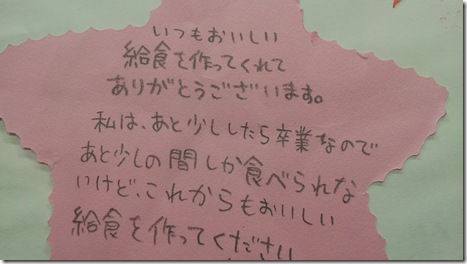 いつもおいしい
給食を作ってくれて
ありがとうございます。
私は、あと少ししたら卒業なので
あと少しの間しか食べられな
いけど、これからもおいしい
給食を作ってください